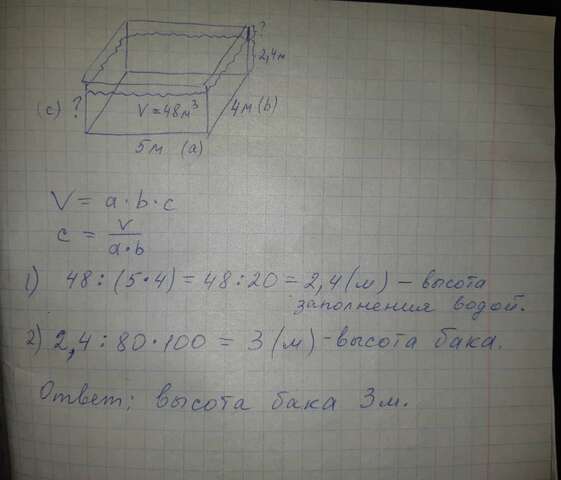 ?
2,4м
(с) ?
V = 48м³
4м (b)
5м (a)
V = a · b · c
c = V / a·b
1) 48 : (5·4) = 48 : 20 = 2,4 (м) – высота
заполнения водой.
2) 2,4 : 80 · 100 = 3 (м) - высота бака.
Ответ: высота бака 3м.